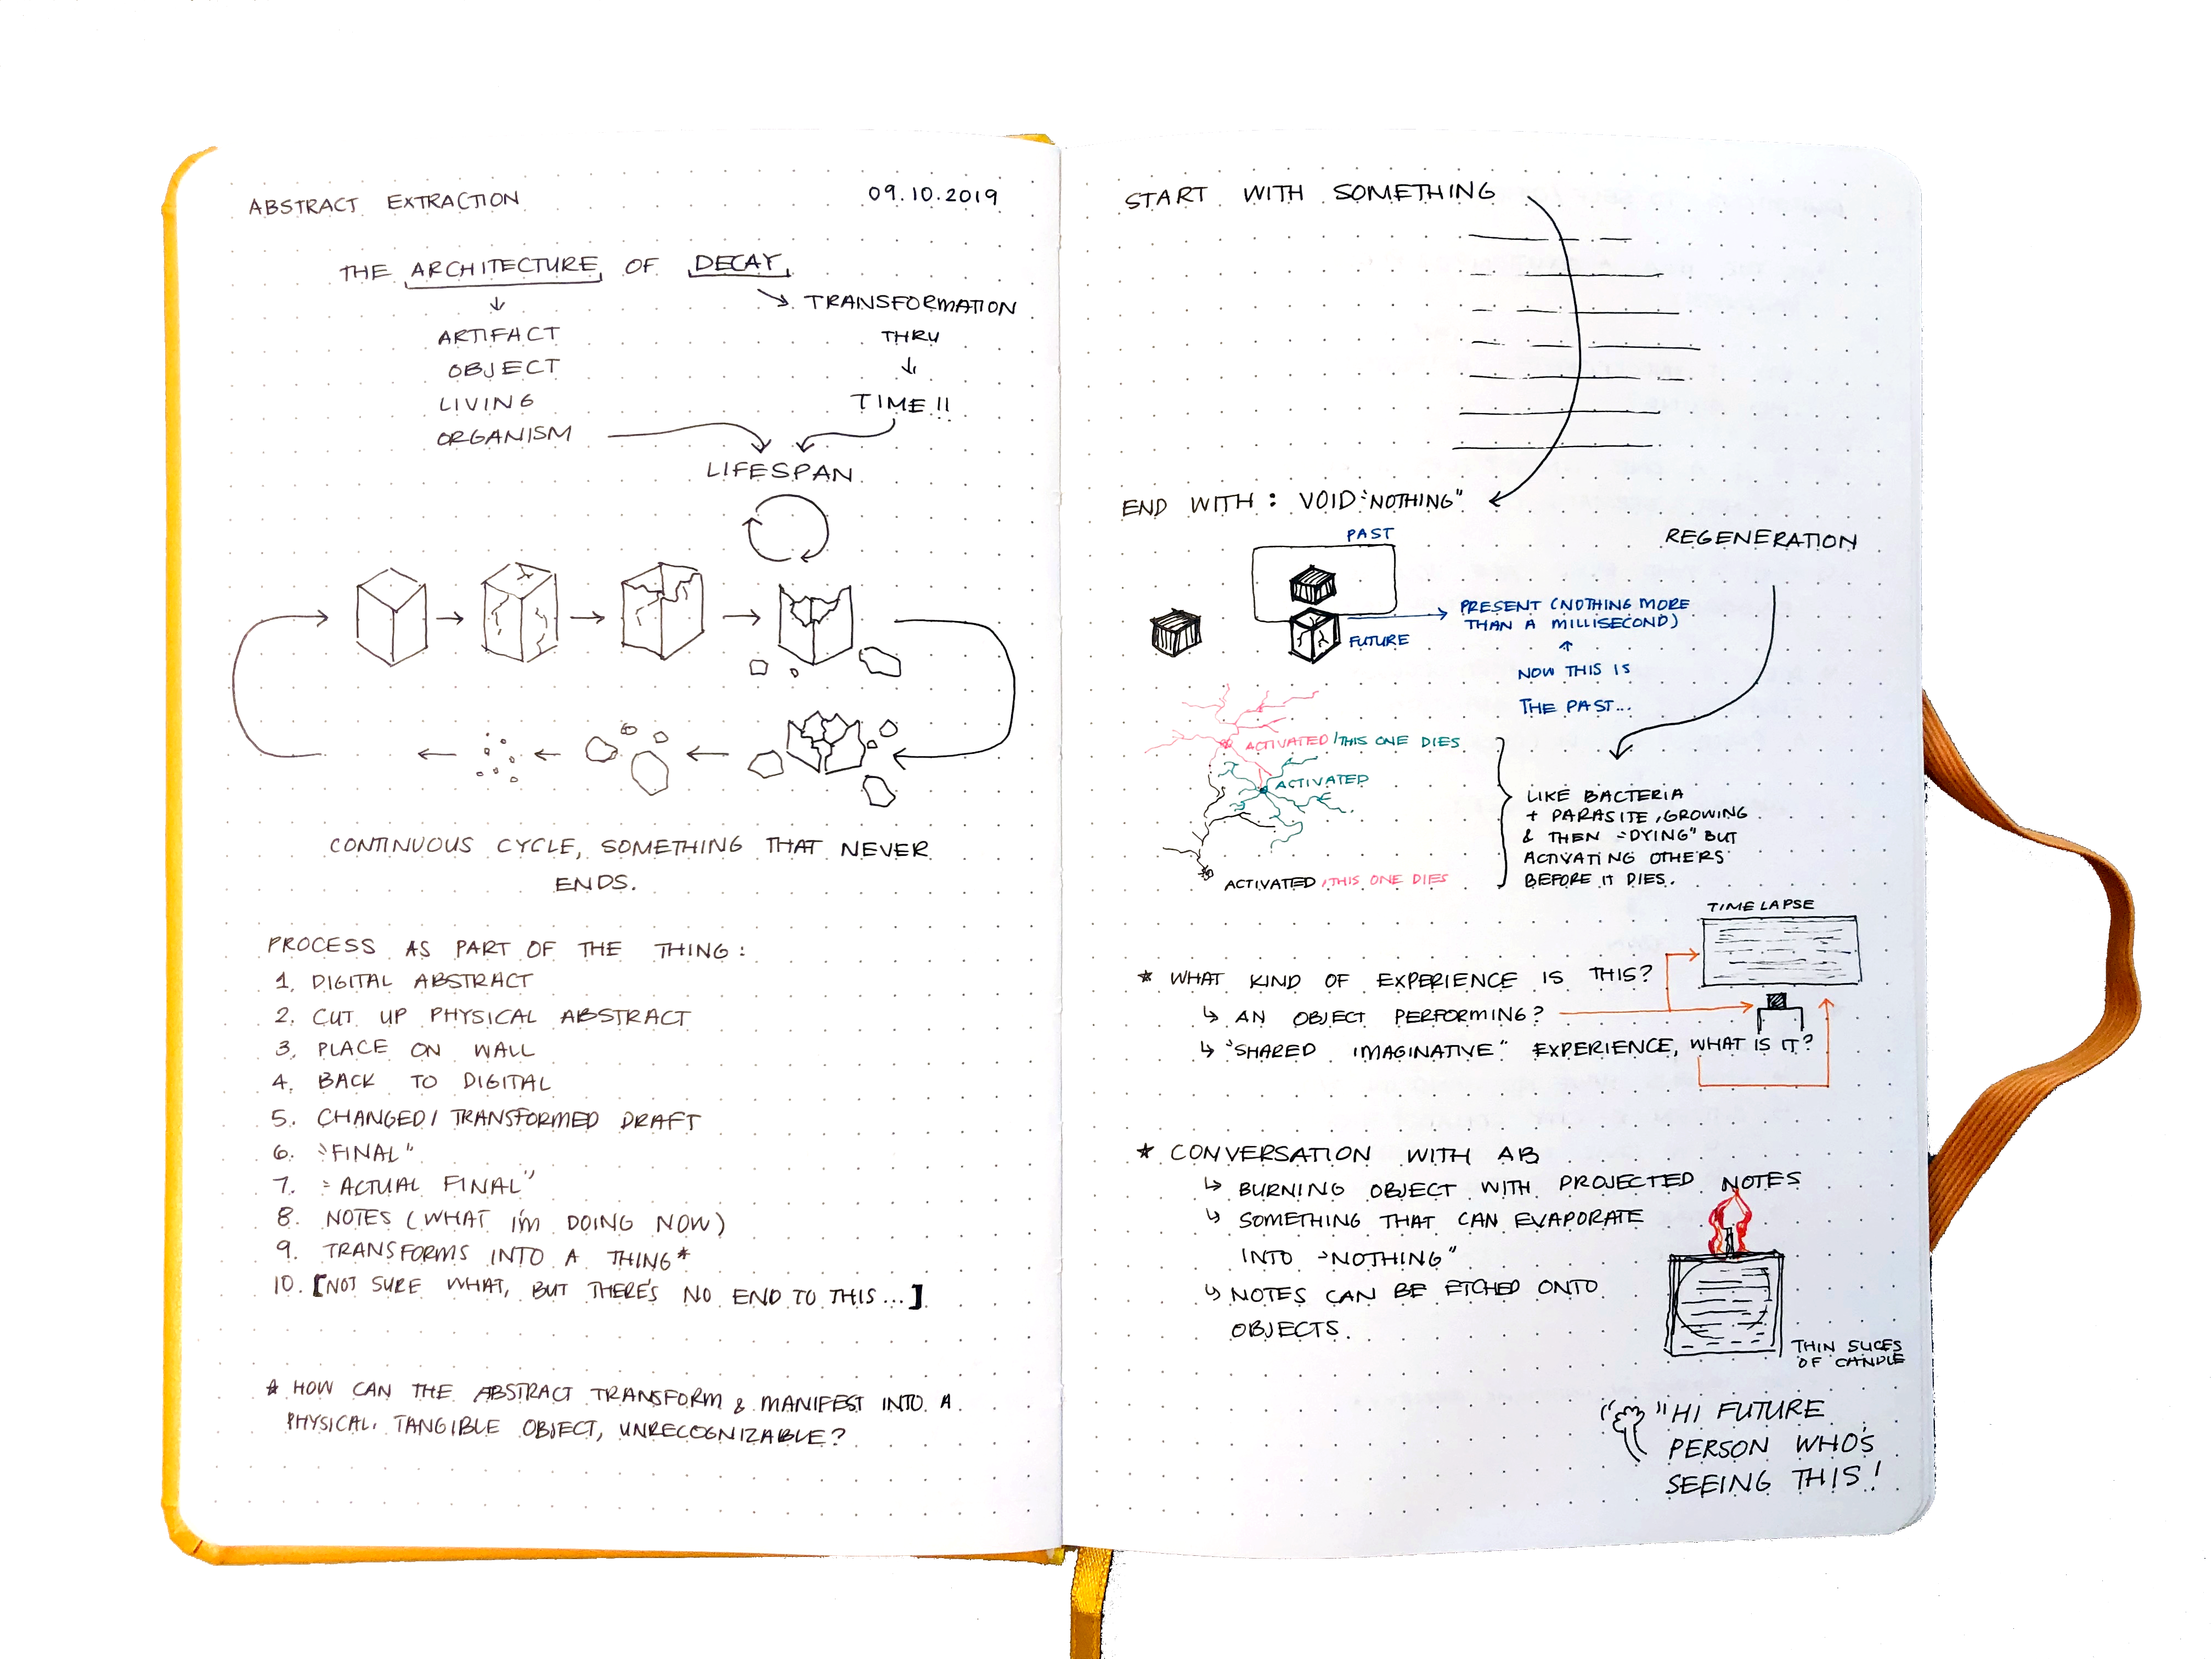 ABSTRACT EXTRACTION 09.10.2019
THE ARCHITECTURE OF DECAY
TRANSFORMATION
THRU
TIME!!
ARTIFACT
OBJECT
LIVING
ORGANISM
LIFESPAN
CONTINUOUS CYCLE, SOMETHING THAT NEVER
ENDS.
PROCESS AS PART OF THE THING:
1. DIGITAL ABSTRACT
2. CUT UP PHYSICAL ABSTRACT
3. PLACE ON WALL
4. BACK TO DIGITAL
5. CHANGED/TRANSFORMED DRAFT
6. "FINAL"
7. "ACTUAL FINAL"
8. NOTES (WHAT I'M DOING NOW)
9. TRANSFORMS INTO A THING*
10. [NOT SURE WHAT, BUT THERE'S NO END TO THIS...]
* HOW CAN THE ABSTRACT TRANSFORM & MANIFEST INTO A
PHYSICAL, TANGIBLE OBJECT, UNRECOGNIZABLE?
START WITH SOMETHING
END WITH: VOID "NOTHING"
PAST
FUTURE
PRESENT (NOTHING MORE
THAN A MILLISECOND)
NOW THIS IS
THE PAST...
REGENERATION
ACTIVATED/THIS ONE DIES
ACTIVATED
ACTIVATED/THIS ONE DIES
LIKE BACTERIA
+ PARASITE, GROWING
& THEN "DYING" BUT
ACTIVATING OTHERS
BEFORE IT DIES.
TIME LAPSE
* WHAT KIND OF EXPERIENCE IS THIS?
↳ AN OBJECT PERFORMING?
↳ "SHARED IMAGINATIVE" EXPERIENCE, WHAT IS IT?
* CONVERSATION WITH AB
↳ BURNING OBJECT WITH PROJECTED NOTES
↳ SOMETHING THAT CAN EVAPORATE
INTO "NOTHING"
↳ NOTES CAN BE ETCHED ONTO
OBJECTS.
THIN SLICES
OF CANDLE
"HI FUTURE
PERSON WHO'S
SEEING THIS!